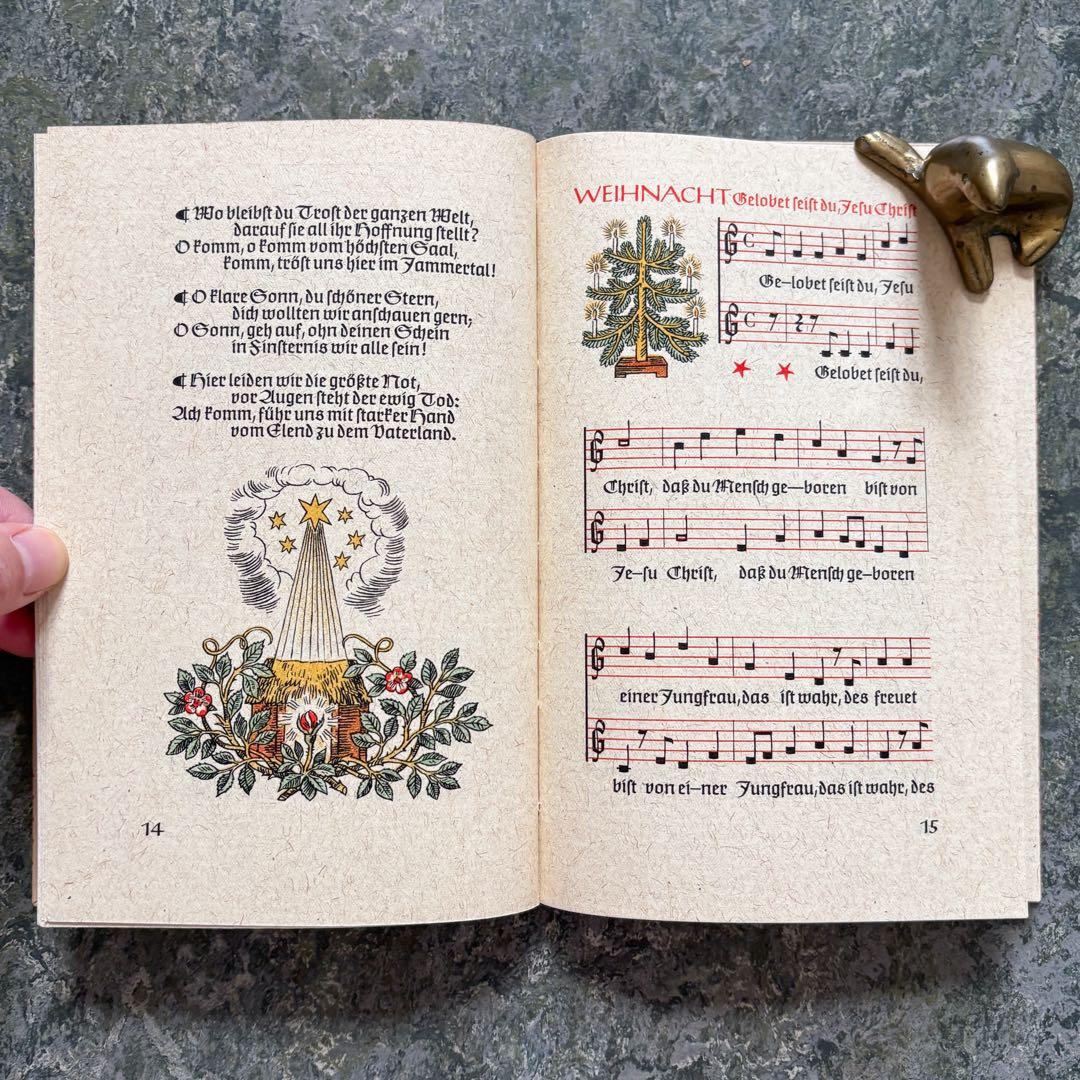 Wo bleibst du Trost der ganzen Welt,
darauf sie all ihr Hoffnung stellt?
O komm, o komm vom höchsten Saal,
komm, tröst uns hier im Jammertal!
O klare Sonn, du schöner Stern,
dich wollten wir anschauen gern;
O Sonn, geh auf, ohn deinen Schein
in Finsternis wir alle sein!
Hier leiden wir die größte Not,
vor Augen steht der ewig Tod:
Ach komm, führ uns mit starker Hand
vom Elend zu dem Vaterland.
14
WEIHNACHT Gelobet seist du, Jesu Christ
Ge-lobet seist du, Jesu
Gelobet seist du,
Christ, daß du Mensch ge-boren bist von
Je-su Christ, daß du Mensch ge-boren
einer Jungfrau, das ist wahr, des freuet
bist von ei-ner Jungfrau, das ist wahr, des
15